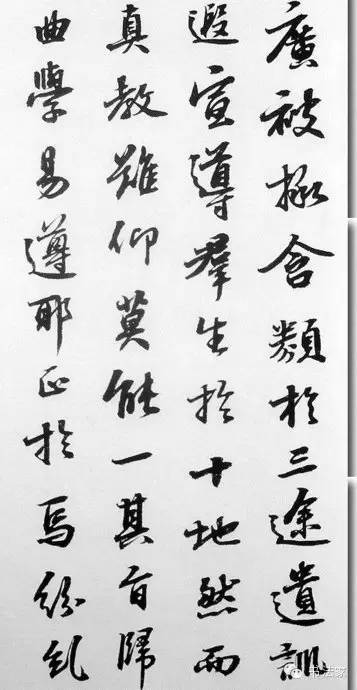 廣被拯含類於三途遺訓
遐宣導群生於十地然而
真教難仰莫能一其旨歸
曲學易遵耶正於焉紛糺
书法家